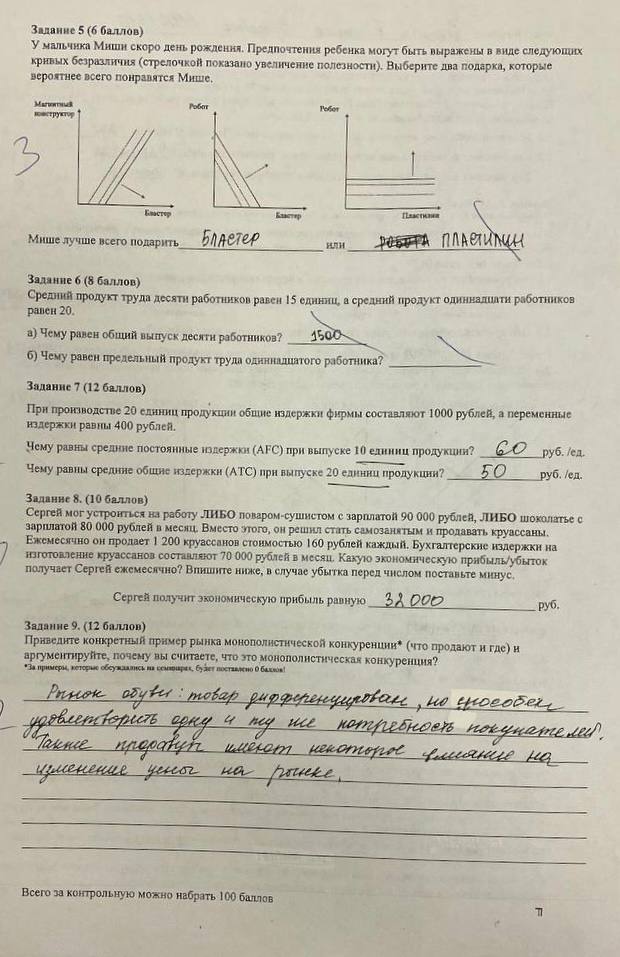 Задание 5 (6 баллов)
У мальчика Миши скоро день рождения. Предпочтения ребенка могут быть выражены в виде следующих
кривых безразличия (стрелочкой показано увеличение полезности). Выберите два подарка, которые
вероятнее всего понравятся Мише.
Магнитный
конструктор
Робот
Робот
3
Бластер
Бластер
Пластилин
Мише лучше всего подарить БЛАСТЕР или РОБОТА ПЛАСТИЛИН
Задание 6 (8 баллов)
Средний продукт труда десяти работников равен 15 единиц, а средний продукт одиннадцати работников
равен 20.
а) Чему равен общий выпуск десяти работников? 1500
б) Чему равен предельный продукт труда одиннадцатого работника?
Задание 7 (12 баллов)
При производстве 20 единиц продукции общие издержки фирмы составляют 1000 рублей, а переменные
издержки равны 400 рублей.
Чему равны средние постоянные издержки (AFC) при выпуске 10 единиц продукции? 60 руб. /ед.
Чему равны средние общие издержки (ATC) при выпуске 20 единиц продукции? 50 руб. /ед.
Задание 8. (10 баллов)
Сергей мог устроиться на работу ЛИБО поваром-сушистом с зарплатой 90 000 рублей, ЛИБО шоколатье с
зарплатой 80 000 рублей в месяц. Вместо этого, он решил стать самозанятым и продавать круассаны.
Ежемесячно он продает 1 200 круассанов стоимостью 160 рублей каждый. Бухгалтерские издержки на
изготовление круассанов составляют 70 000 рублей в месяц. Какую экономическую прибыль/убыток
получает Сергей ежемесячно? Впишите ниже, в случае убытка перед числом поставьте минус.
Сергей получит экономическую прибыль равную 32 000 руб.
Задание 9. (12 баллов)
Приведите конкретный пример рынка монополистической конкуренции* (что продают и где) и
аргументируйте, почему вы считаете, что это монополистическая конкуренция?
*За примеры, которые обсуждались на семинарах, будет поставлено 0 баллов!
Рынок обуви: товар дифференцирован, но способен
удовлетворить одну и ту же потребность покупателей.
Также продавцы имеют некоторое влияние на
изменение цены на рынке.
Всего за контрольную можно набрать 100 баллов